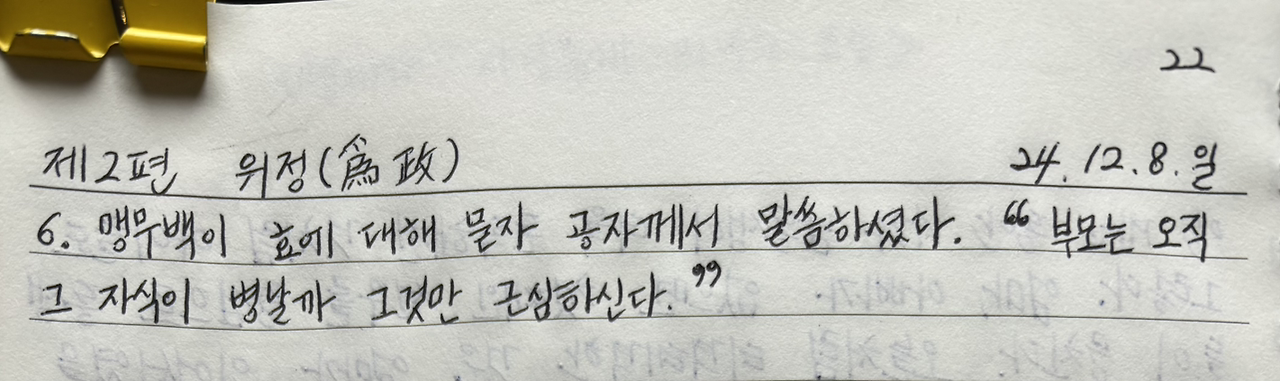 22
제2편 위정(爲政) 24.12.8.일
6. 맹무백이 효에 대해 묻자 공자께서 말씀하셨다. “부모는 오직
그 자식이 병날까 그것만 근심하신다.”